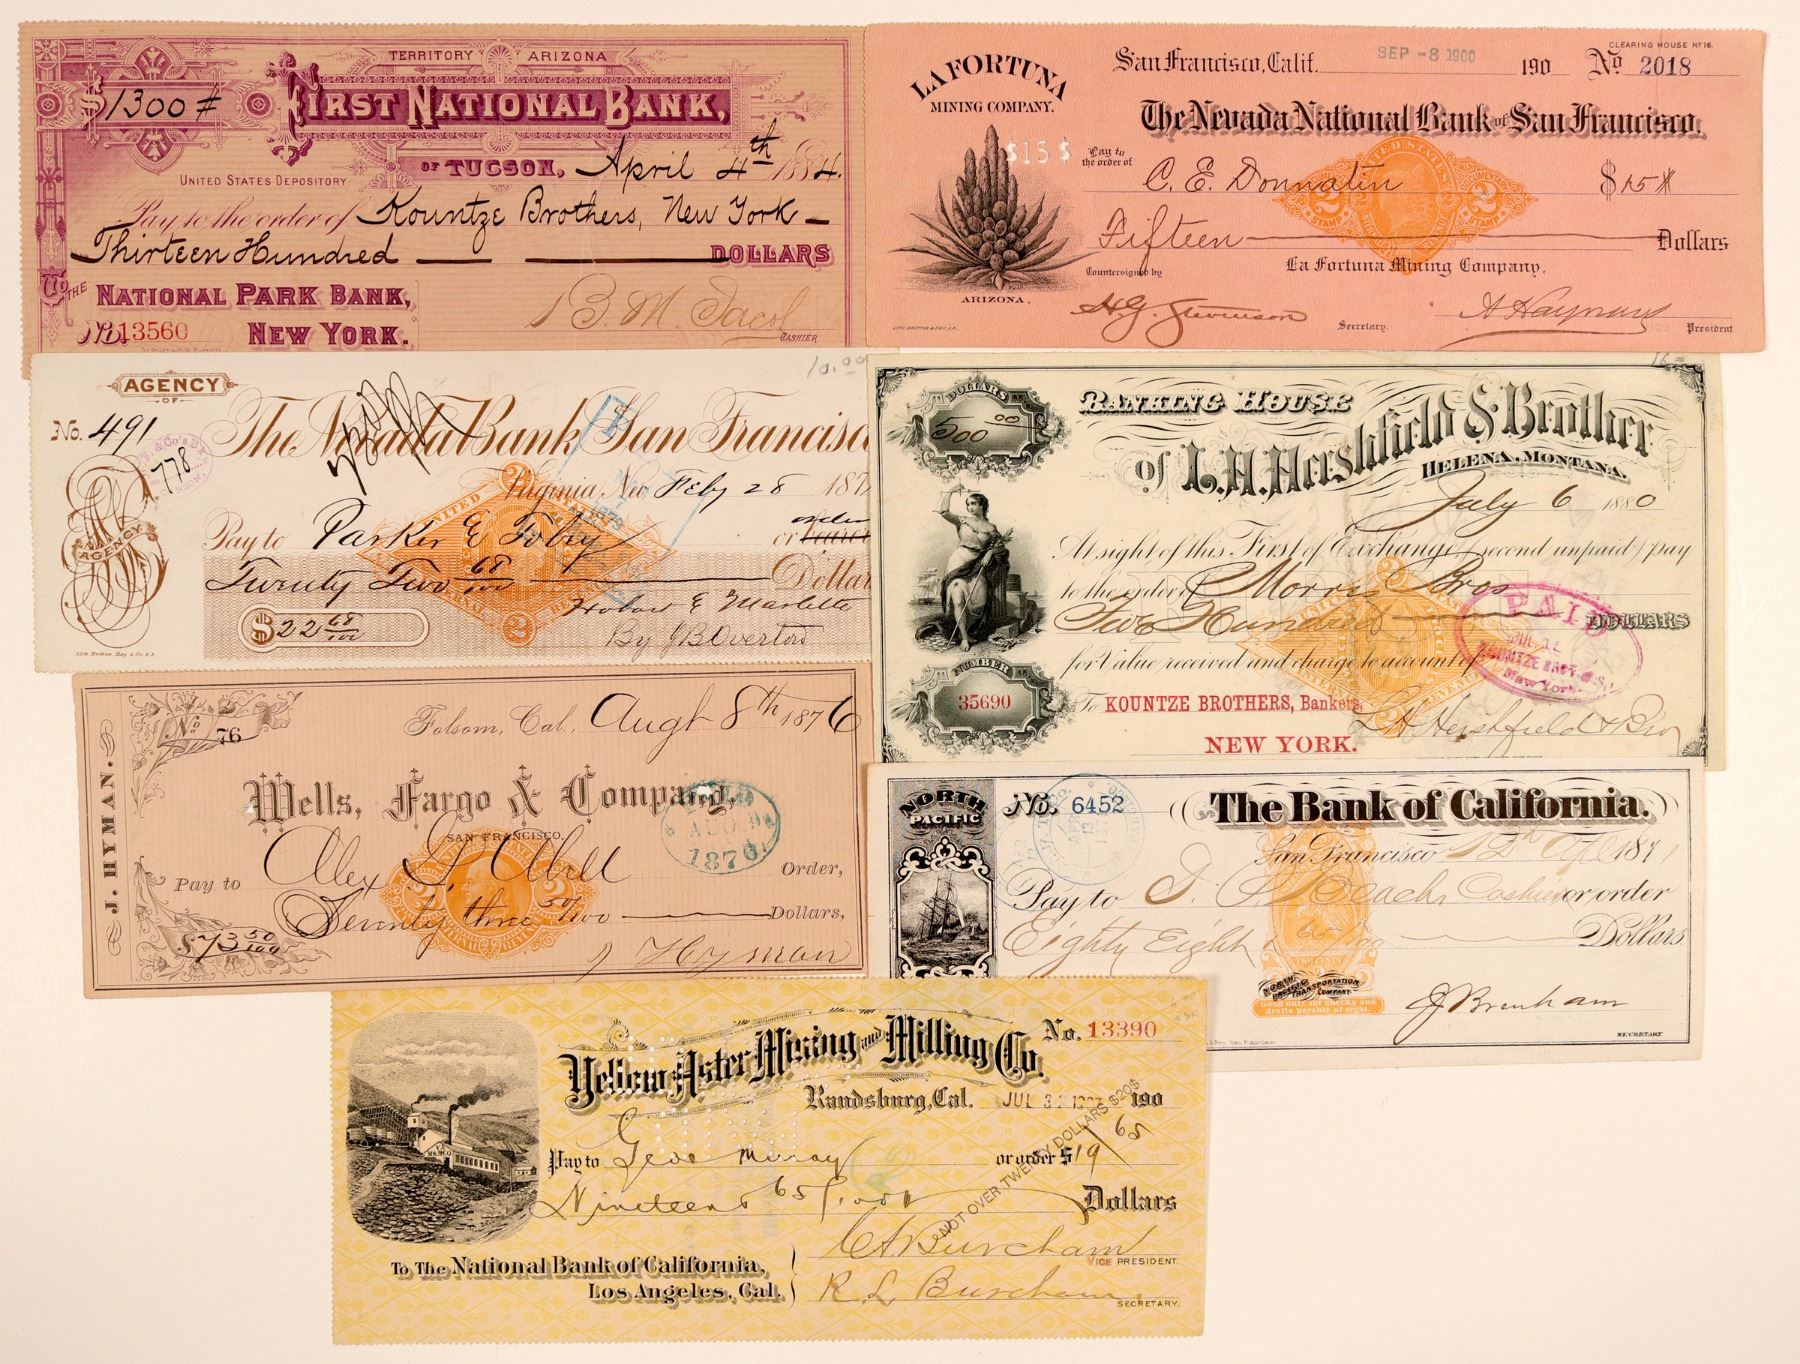 TERRITORY ARIZONA
$1300#
FIRST NATIONAL BANK,
OF TUCSON, April 4th 1884.
UNITED STATES DEPOSITORY
Pay to the order of Kountze Brothers, New York
Thirteen Hundred DOLLARS
To THE NATIONAL PARK BANK,
No. 13560 NEW YORK.
CASHIER
CLEARING HOUSE No 16.
LA FORTUNA
MINING COMPANY.
San Francisco, Calif. SEP -8 1900 190 No 2018
The Nevada National Bank of San Francisco.
$15$
Pay to the order of C. E. Donnatin $15
UNITED STATES
DOCUMENTARY
2 STAMP 2 STAMP
Fifteen Dollars
Countersigned by La Fortuna Mining Company.
ARIZONA.
H. G. Stevenson Secretary. President
10.00
AGENCY
OF
No. 491
The Nevada Bank San Francisco
778
Virginia, Nev. Feby 28 187
Pay to Parker & order
or bearer
AGENCY
Twenty Two 68/100 Dollar
$22 68/100
Hobart & Marlette
By J B Overton
2
DOLLARS
500 00
BANKING HOUSE
OF L. H. Hershfield & Brother
HELENA, MONTANA.
July 6 1880
At sight of this First of Exchange, second unpaid, pay
to the order of Morris Bros
Five Hundred DOLLARS
for Value received and charge to account of
PAID
KOUNTZE BROS.
New York
NUMBER
35690
To KOUNTZE BROTHERS, Bankers,
NEW YORK.
L H Hershfield & Bro
No 76
Folsom, Cal., Augt 8th 1876
J. HYMAN.
Wells, Fargo & Company,
SAN FRANCISCO.
AUG. 9
1876
Pay to Alex Order,
Seventy three 50/100 Dollars,
$73 50/100
J Hyman
NORTH
PACIFIC
No. 6452
The Bank of California.
San Francisco 12th 187
Pay to Cashier or order
Eighty Eight 65/100 Dollars
TWO CENTS
NORTH PACIFIC TRANSPORTATION COMPANY
Good only for checks and
drafts payable at sight.
J Brenham
SECRETARY
Yellow Aster Mining and Milling Co.
No. 13390
Randsburg, Cal. JUL 190
Pay to Geo Murray or order $19 65
NOT OVER TWENTY DOLLARS $20$
Nineteen 65/100 Dollars
To The National Bank of California,
Los Angeles, Cal.
Burcham
VICE PRESIDENT.
R L Burcham
SECRETARY.